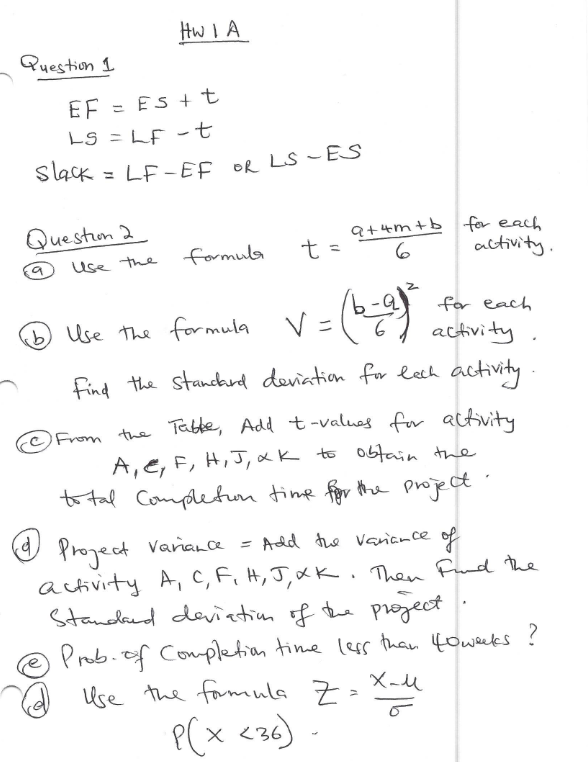 HW 1 A
Question 1
EF = ES + t
LS = LF - t
Slack = LF - EF OR LS - ES
Question 2
(a) Use the formula t = (a+4m+b)/6 for each activity.
(b) Use the formula V = ((b-a)/6)² for each activity.
find the standard deviation for each activity.
(c) From the Table, Add t-values for activity
A, C, F, H, J, & K to obtain the
total Completion time for the project.
(d) Project variance = Add the variance of
activity A, C, F, H, J, & K. Then Find the
Standard deviation of the project.
(e) Prob. of Completion time less than 40 weeks ?
(d) Use the formula Z = (X-μ)/σ
P(X <36).